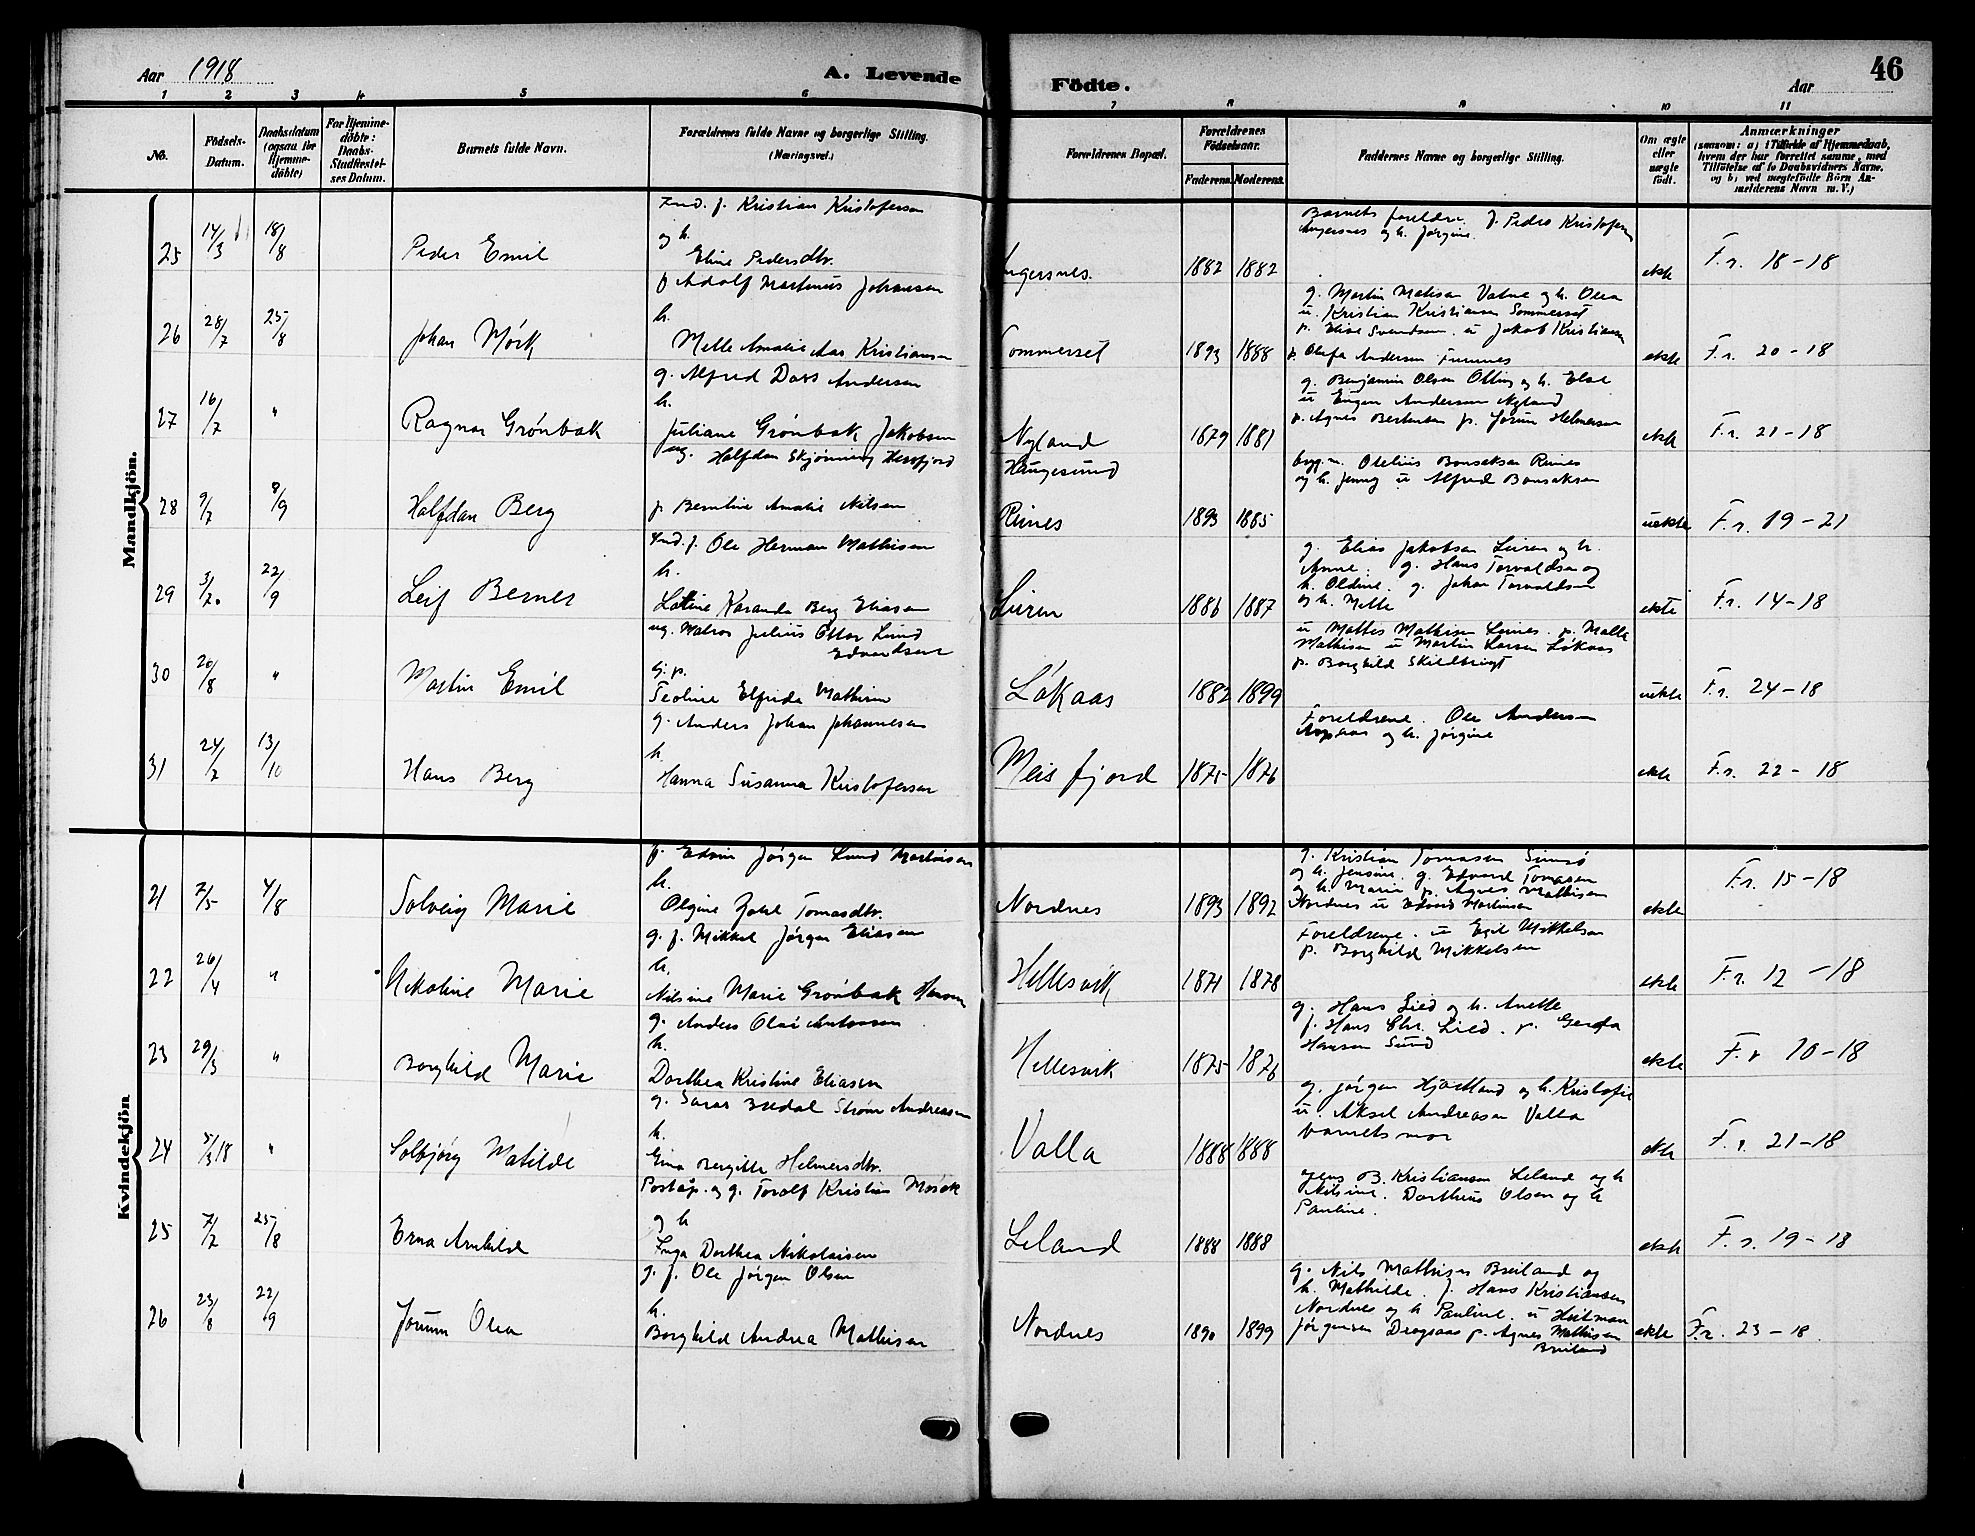 Aar 1918
A. Levende Födte.
46
Aar
1 2 3 4 5 6 7 8 9 10 11
No.
Födsels-Datum.
Daabsdatum (ogsaa for Hjemme-döbte)
For Hjemme-döbte: Daabs-Stadfæstel-ses Datum.
Barnets fulde Navn.
Forældrenes fulde Navne og borgerlige Stilling. (Næringsvei.)
Forældrenes Bopæl.
Forældrenes Födselsaar.
Faderens. Moderens.
Faddernes Navne og borgerlige Stilling.
Om ægte eller uægte födt.
Anmærkninger
(saasom: a) i Tilfælde af Hjemmedaab, hvem der har forrettet samme, med Tilföielse af to Daabsvidners Navne, og b) ved uægtefödte Börn An-melderens Navn m. V.)
Mandkjön.
25 14/3 18/8 Peder Emil
Ind. f. Kristian Kristofersen
og h.
Eline Pedersdtr.
Angersnes. 1882 1882
Barnets foreldre. f. Pedro Kristofersen
Angersnes og h. Jørgine.
ekte F.r. 18-18
26 28/7 25/8 Johan Mørk
f Adolf Martinus Johansen
h.
Mette Amalie Aas Kristiansen
Sommerset 1893 1888
g. Martin Matisen Valne og h. Olea
u. Kristian Kristiansen Sommerset
p. Elise Svendsen. u Jakob Kristiansen
p. Olufa Andersen
ekte F.r. 20-18
27 16/7 " Ragnar Grönbæk
g. Alfred Dass Andersen
h.
Juliane Grönbæk Jakobsen
Nyland 1879 1881
g. Benjamin Olsen Otting og h. Else
u Eugen Andersen Nyland
p. Agnes Berntsen p. Jorun Helmersen
ekte F.r. 21-18
28 9/7 8/9 Halfdan Berg
ug. Halfdan Skjønning
p Berntine Amalie Nilsen
Haugesund
Reines 1893 1885
byg.m. Otelius Bonsaksen Reines
og h. Jenny u Alfred Bonsaksen
uekte F.r. 19-21
29 3/7. 22/9 Leif Berner
Ind. f. Ole Herman Mathisen
h.
Lotine Karanda Berg Eliasen
Leiren 1886 1887
g. Elias Jakobsen Leiren og h.
Anne. g. Hans Torvaldsen og
h. Oldine. g. Johan Torvaldsen
og h. Mette
ekte F.r. 14-18
30 20/8 " Martin Emil
ug. Matros Julius Ottar Lund
Edvardsen
G.p.
Teoline Elfrida Mathisen
Løkaas 1882 1899
u Mattes Mathisen Leines. p. Malla
Mathisen u Martin Larsen Løkaas
p. Borghild Skildbrigt
uekte F.r. 24-18
31 24/7 13/10 Hans Berg
g. Anders Johan Johannesen
h
Hanna Susanna Kristofersen
Meisfjord 1875 1876
Foreldrene. Ole Andersen
Aspaas og h. Jørgine
ekte F.r. 22-18
Kvindekjön
21 7/5 4/8 Solveig Marie
f. Edvin Jørgen Lund Martinsen
h.
Olgine Tomasdtr.
Nordnes 1893 1892
g. Kristian Tomasen
og h. Jensine. g. Edvard Tomasen
og h. Maria p. Agnes Mathisen
Nordnes u Edvard Martinsen
ekte F.r. 15-18
22 26/4 " Nikoline Marie
g. f. Mikkel Jørgen Eliasen
h.
Nilsine Marie Grönbæk Hansen
Hellesvik 1871 1878
Foreldrene. u Egil Mikkelsen
p. Borghild Mikkelsen
ekte F.r. 12-18
23 29/3 " Borghild Marie
g. Anders Olai Antonsen
h.
Dorthea Kristine Eliasen
Hellesvik 1875 1876
g. Hans Lied og h. Anette
f. Hans Chr. Lied. p. Gerda
Hansen Sund
ekte F.r 10-18
24 5/3 18 " Solbjørg Matilde
g. Bredal Strøm Andreassen
h.
Gina Bergitte Helmersdtr.
Valla 1888 1888
g. Jørgen Hjartland og h. Kristofie
u. Aksel Andreasen Valla
barnets mor
ekte F.r. 21-18
25 7/7 25/8 Erna Arnhilde
Poståp. og g. Toralf Kristian Mosåk
og h
Inga Dorthea Nikolaisen
Leland 1888 1888
Jens B. Kristiansen Leland og h
Nilsine. Dortheus Olsen og h
Pauline.
ekte F.r. 19-18
26 23/8 22/9 Jorunn Olea
g. f. Ole Jørgen Olsen
h.
Borghild Andrea Mathisen
Nordnes 1890 1899
g. Nils Mathisen Breiland og
h. Mathilde. f. Hans Kristiansen
Nordnes og h Pauline. u Hilmar
Jørgensen Dragsaas p. Agnes Mathisen
Breiland
ekte F.r. 23-18